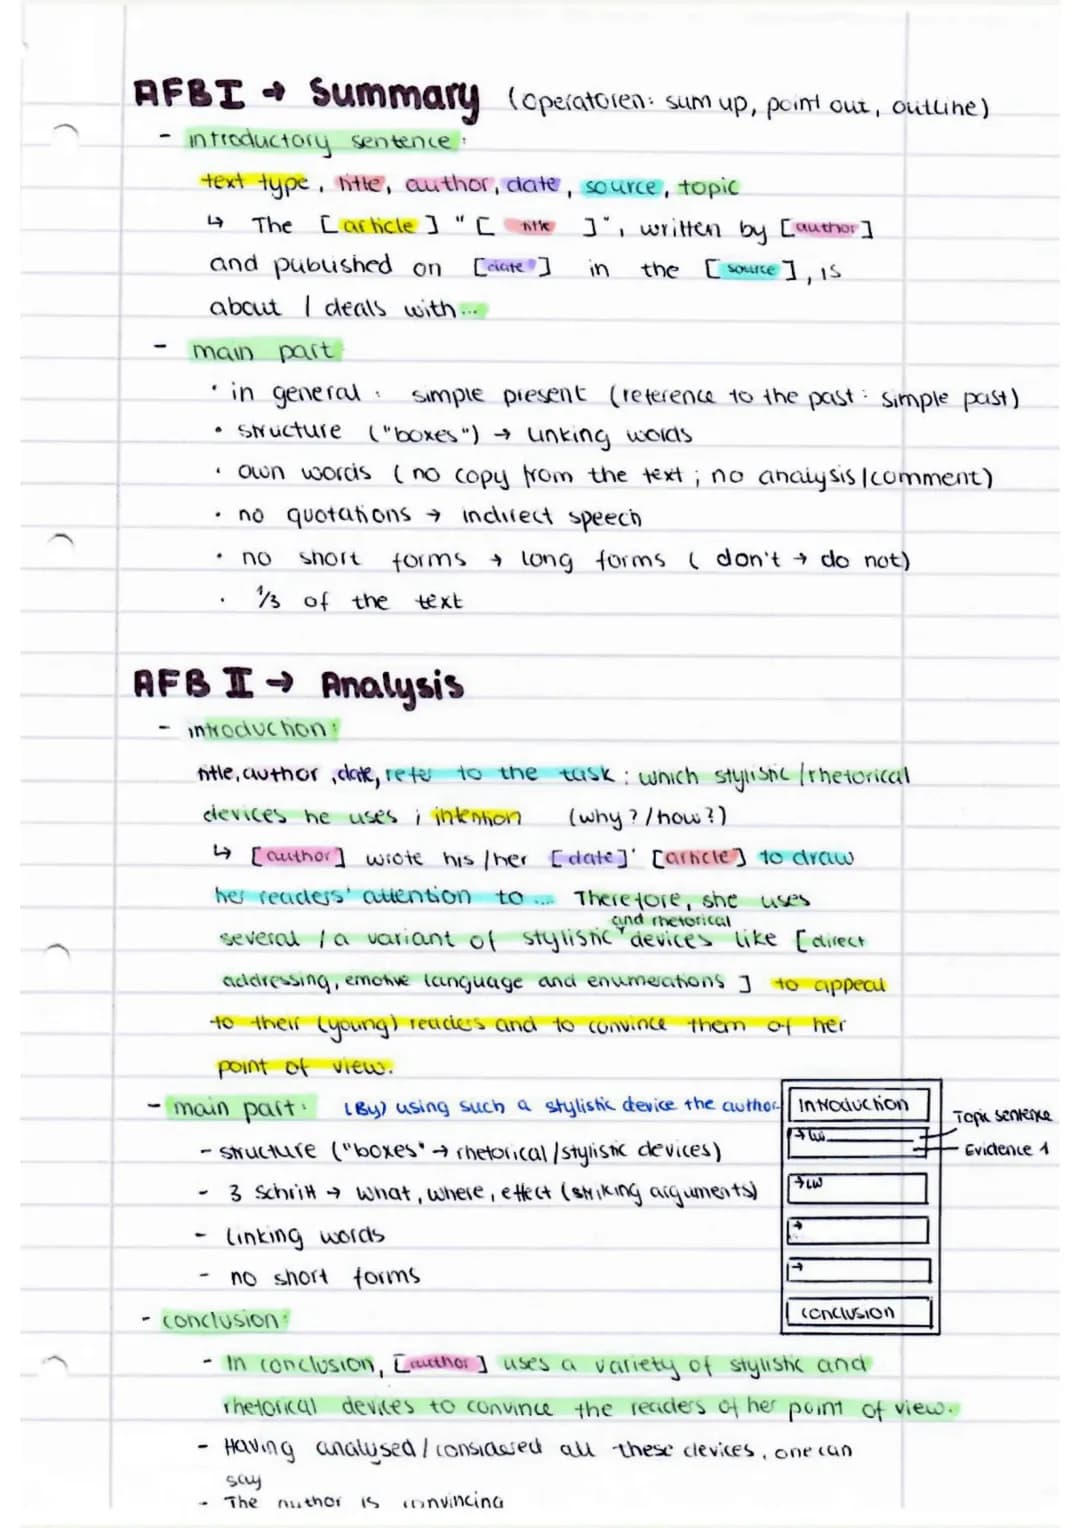 AFB I → Summary (Operatoren: sum up, point out, outline)
- introductory sentence:
text type, title, author, date, source, topic
↳ The [article] "[ title ]", written by [author]
and published on [date] in the [source], is
about / deals with...
- main part
• in general: simple present (reference to the past: simple past)
• structure ("boxes") → linking words
• own words (no copy from the text; no analysis/comment)
• no quotations → indirect speech
• no short forms → long forms (don't → do not)
• 1/3 of the text
AFB II → Analysis
- introduction:
title, author, date, refer to the task: which stylistic/rhetorical
devices he uses; intention (why?/how?)
↳ [author] wrote his/her [date]' [article] to draw
her readers' attention to ... Therefore, she uses
and rhetorical
several / a variant of stylistic devices like [direct
addressing, emotive language and enumerations] to appeal
to their (young) readers and to convince them of her
point of view.
- main part: (By) using such a stylistic device the author
- structure ("boxes" → rhetorical/stylistic devices)
- 3 Schritt → what, where, effect (striking arguments)
- linking words
- no short forms
Introduction
→ LW
Topic sentence
Evidence 1
→ LW
→
→
conclusion
- conclusion:
- In conclusion, [author] uses a variety of stylistic and
rhetorical devices to convince the readers of her point of view.
- Having analysed/considered all these devices, one can
say
- The author is convincing